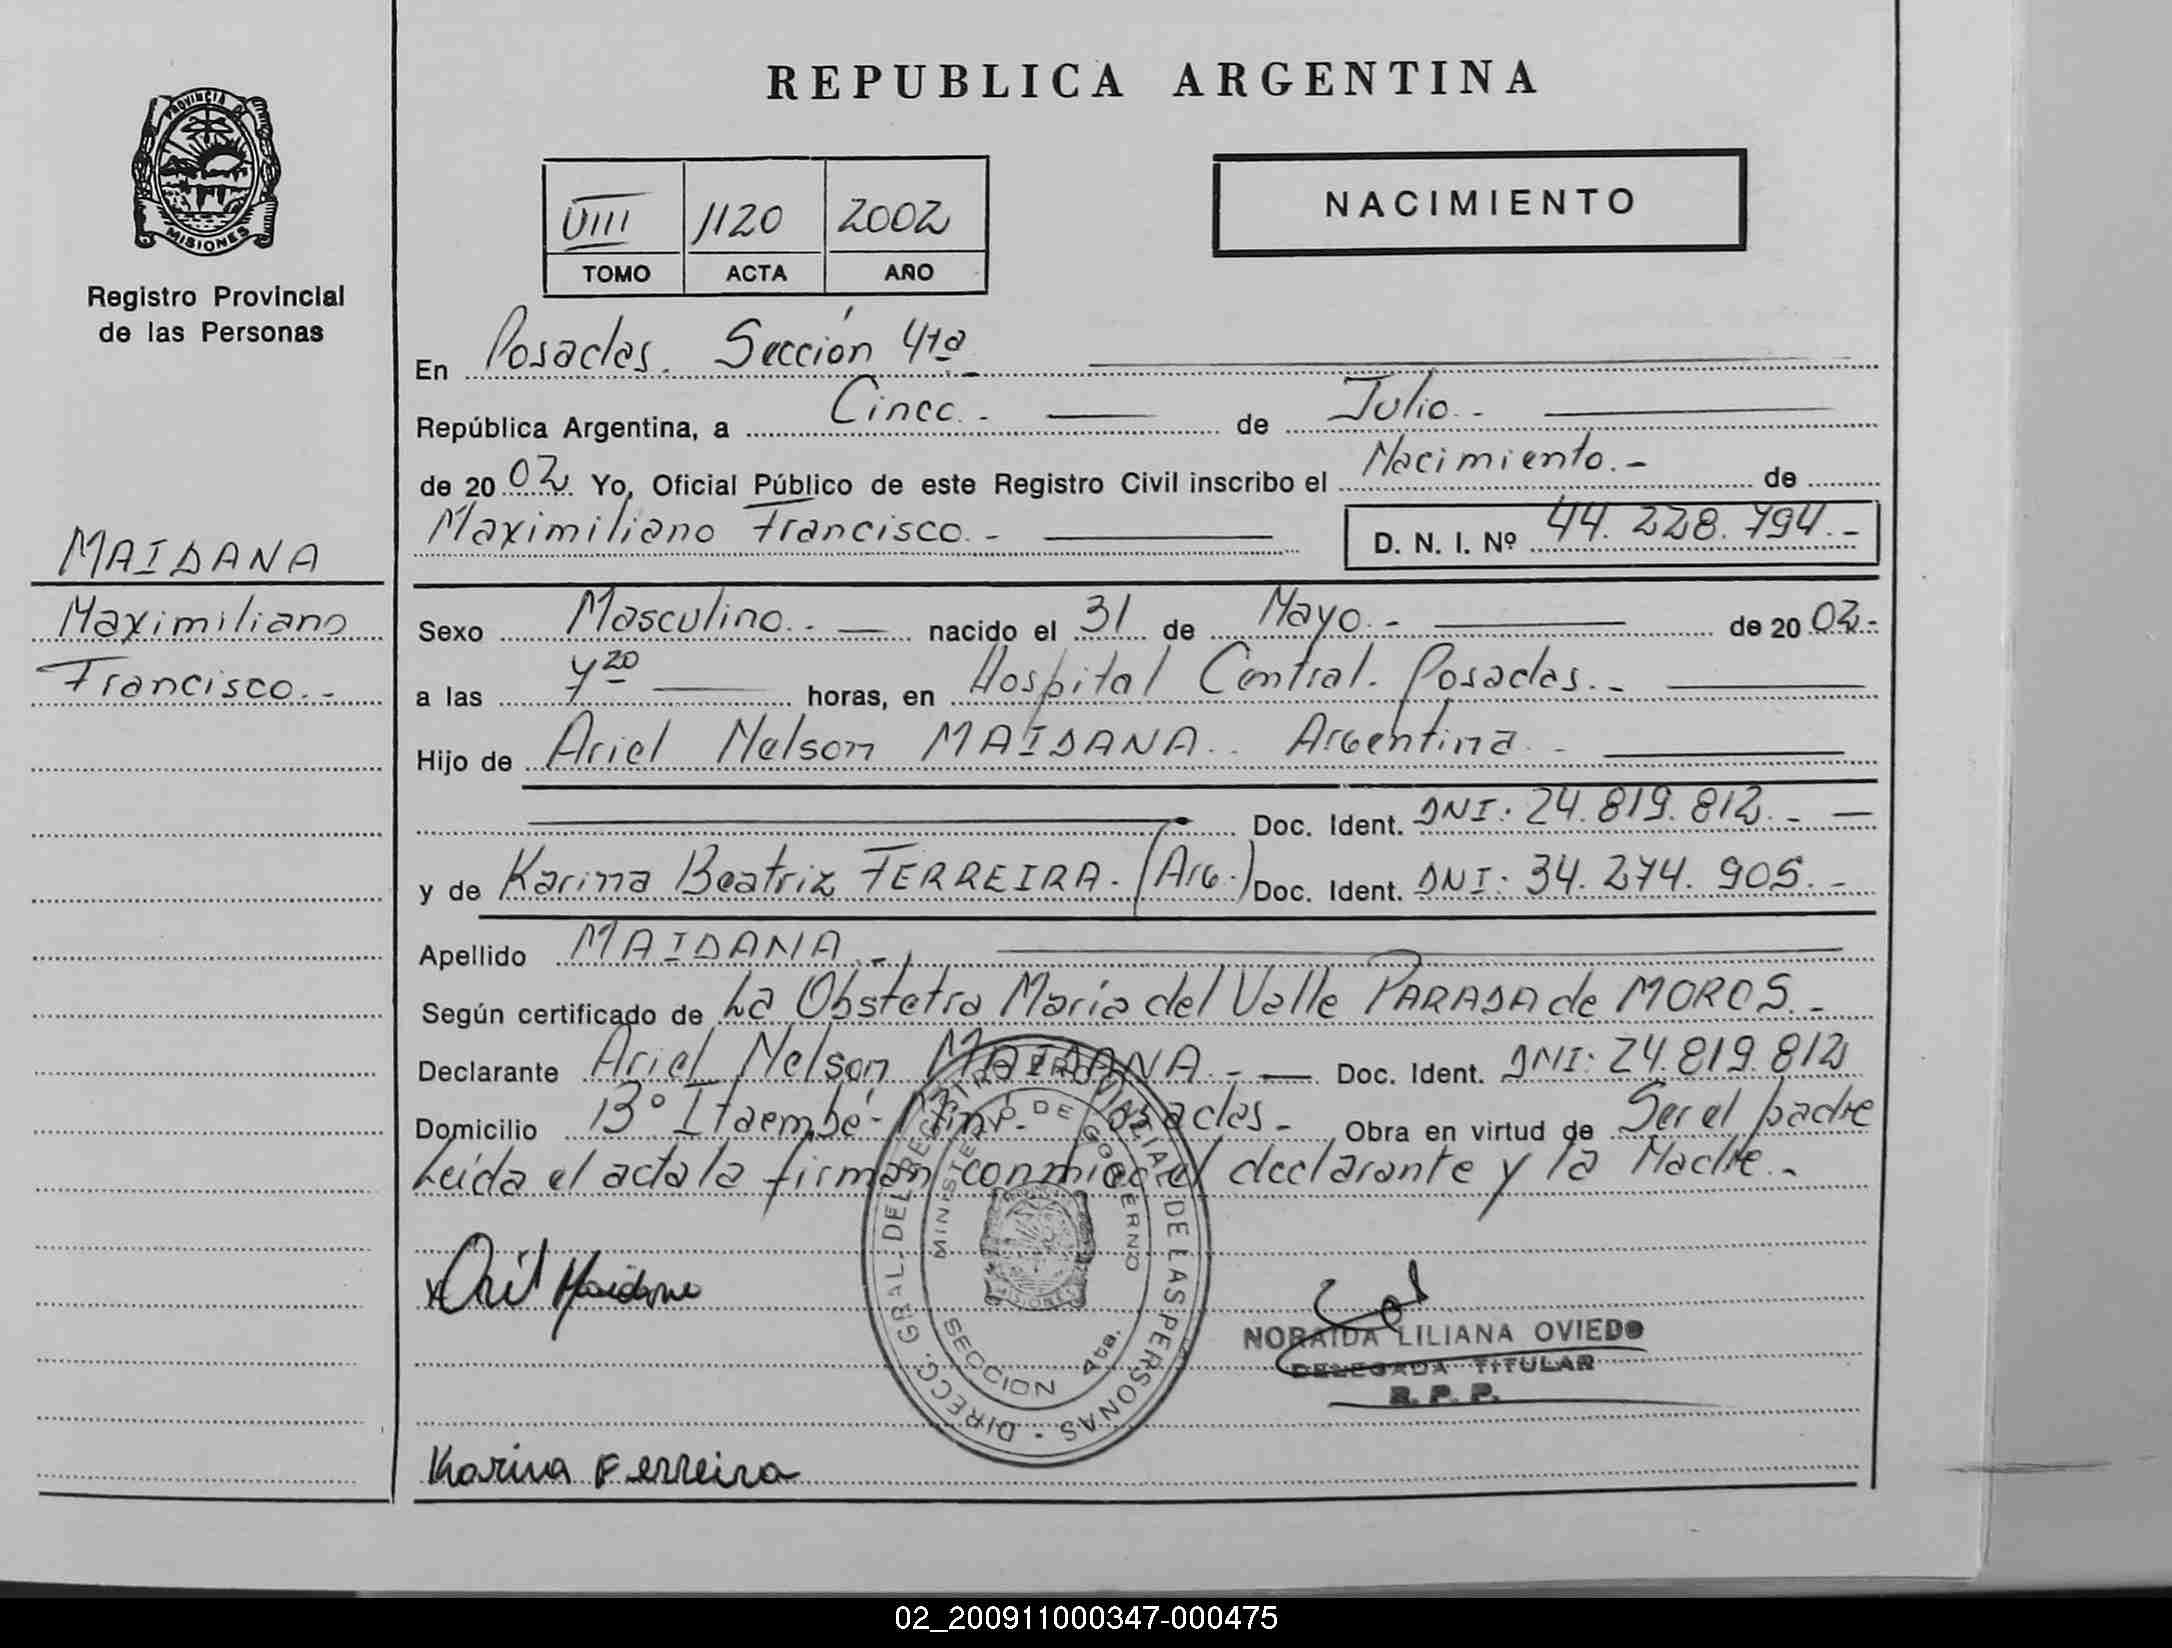 REPUBLICA ARGENTINA
PROVINCIA DE
MISIONES
Registro Provincial
de las Personas
NACIMIENTO
VIII 1120 2002
TOMO ACTA AÑO
En Posadas. Sección 4ta
República Argentina, a Cinco.- de Julio.-
de 2002 Yo, Oficial Público de este Registro Civil inscribo el Nacimiento.- de
Maximiliano Francisco.- D. N. I. Nº 44.228.794.-
MAIDANA
Maximiliano
Francisco.-
Sexo Masculino.- nacido el 31 de Mayo.- de 2002.-
a las 4 20 horas, en Hospital Central. Posadas.-
Hijo de Ariel Nelson MAIDANA. Argentina.-
Doc. Ident. DNI: 24.819.812.-
y de Karina Beatriz FERREIRA. (Arg.) Doc. Ident. DNI: 34.274.905.-
Apellido MAIDANA.-
Según certificado de La Obstetra María del Valle PARADA de MOROS.-
Declarante Ariel Nelson MAIDANA.- Doc. Ident. DNI: 24.819.812
Domicilio Bº Itaembé-Miní. Posadas.- Obra en virtud de Ser el padre
Leída el acta la firman conmigo el declarante y la Madre.-
DIRECC. GRAL. DEL REGISTRO PROVINCIAL DE LAS PERSONAS
MINISTERIO DE GOBIERNO
SECCION 4ta.
MISIONES
Ariel Maidana
NORAIDA LILIANA OVIEDO
DELEGADA TITULAR
R. P. P.
Karina Ferreira
02_200911000347-000475